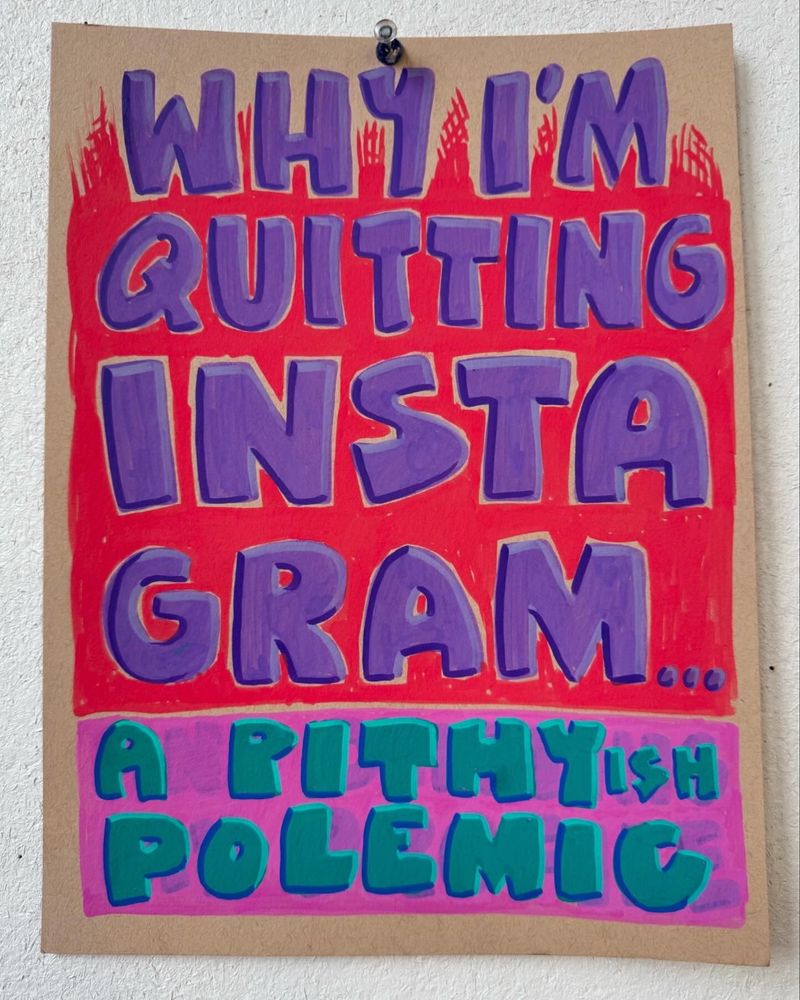 WHY I'M
QUITTING
INSTA
GRAM...
A PITHYISH
POLEMIC